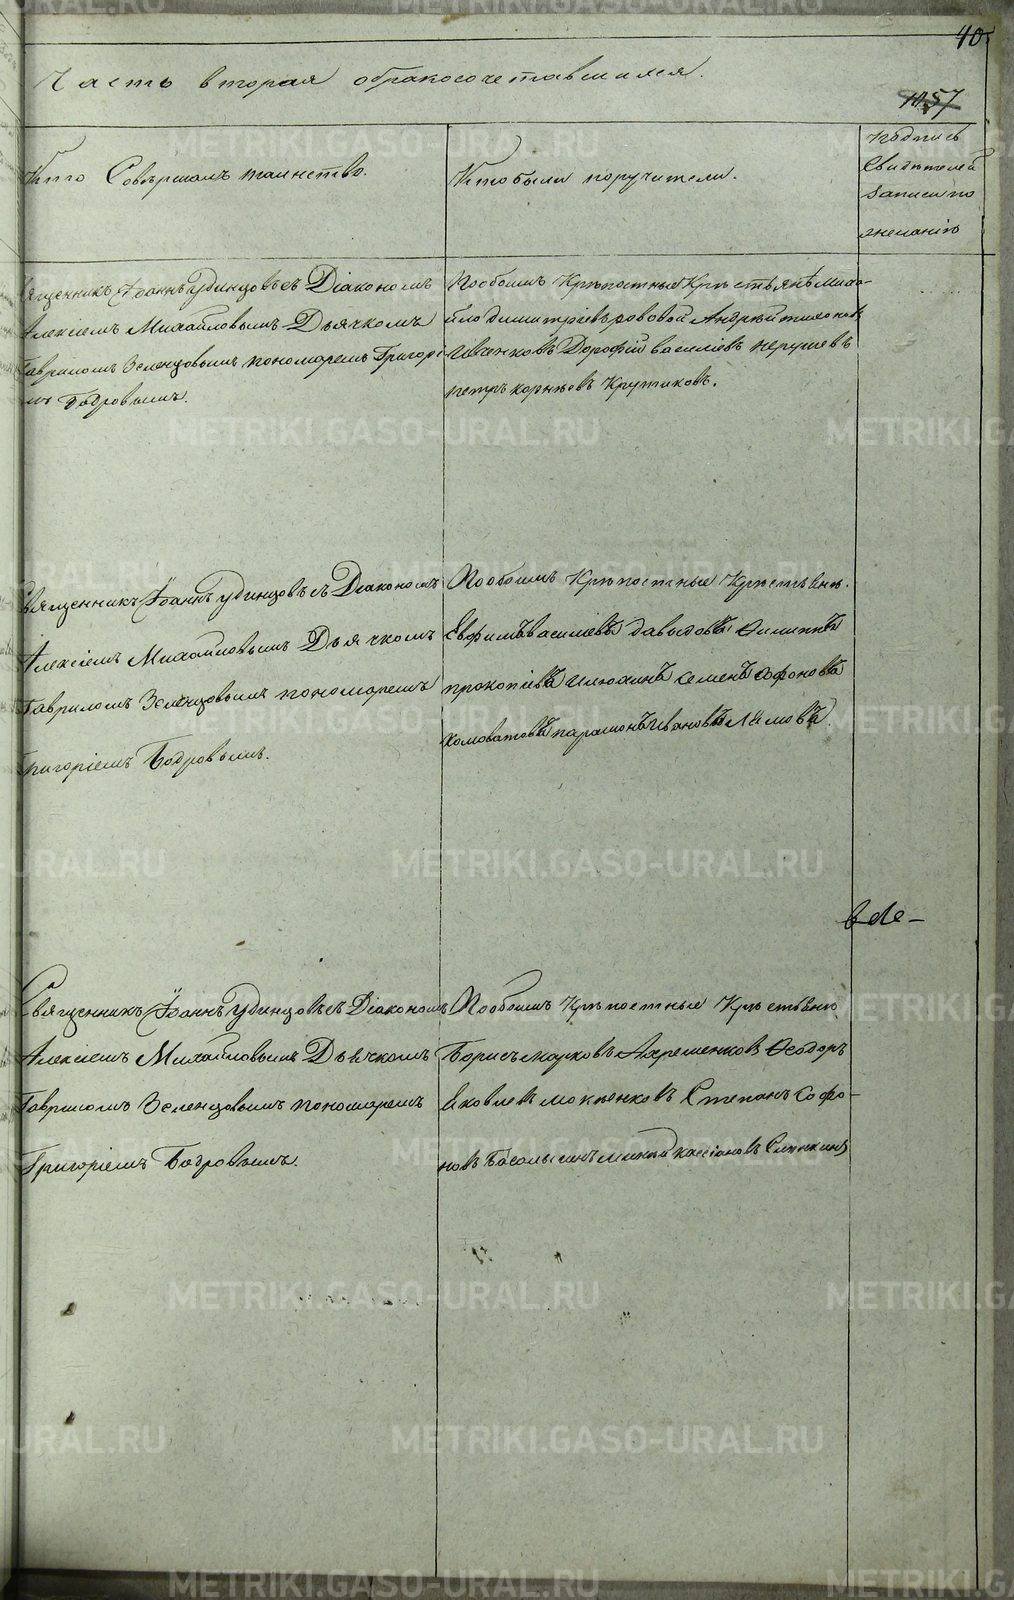 40
Часть вторая обракосочетавшихся.
1057
Кто Совѣршалъ таинство.
Кто были поручители.
Подпись
Свидѣтелей
Записи по
желанію
Священникъ Іоаннъ Удинцовъ съ Діакономъ
Алексіемъ Михайловымъ Дьячкомъ
Гавриломъ Зеленцовымъ пономаремъ Григорі
мъ Бобровымъ.
Пообоимъ Крѣпостные Крестьянѣ Миха-
йло Димитріевъ Андрей тихоновъ
Ивченковъ Дорофій василіевъ
петръ корнѣевъ Крутиковъ.
Священникъ Іоаннъ Удинцовъ съ Діакономъ
Алексіемъ Михайловымъ Дьячкомъ
Гавриломъ Зеленцовымъ пономаремъ
Григоріемъ Бобровымъ.
Пообоимъ Крѣпостные Крестьяне.
Евфимъ василіевъ давыдовъ Филиппъ
прокопіевъ Илюхинъ Семенъ Афоновъ
Холоватовъ парамонъ Ивановъ
Священникъ Іоаннъ Удинцовъ съ Діакономъ
Алексіемъ Михайловымъ Дьячкомъ
Гавриломъ Зеленцовымъ пономаремъ
Григоріемъ Бобровымъ.
Пообоимъ Крѣпостные Крестьяне
Борисъ марковъ Ѳеодоръ
Яковлевъ мокѣенковъ Степанъ Софо-
новъ кассіановъ
METRIKI.GASO-URAL.RU